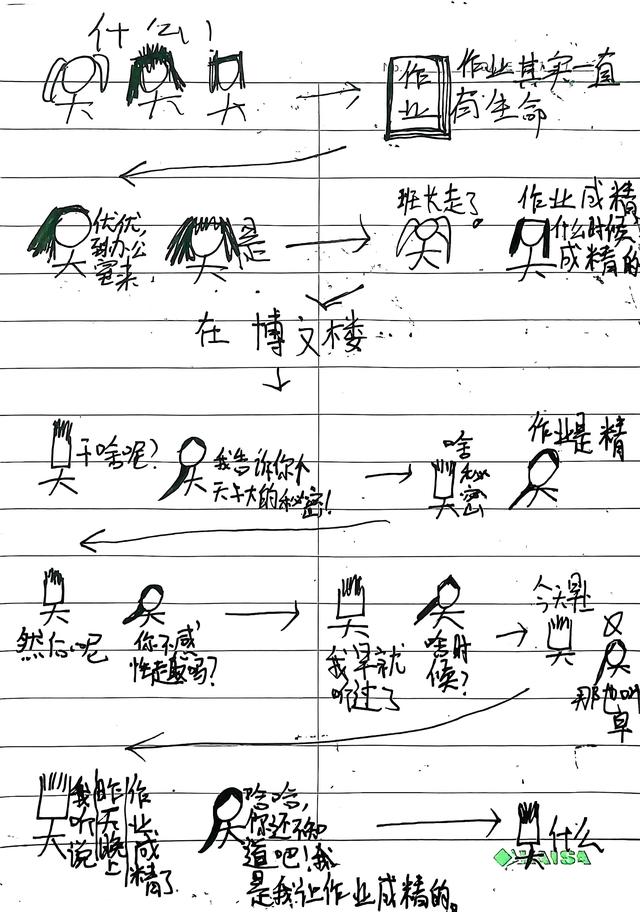 什么!
作
业
作业其实一直
有生命
优优,
到办公
室来
是
班长走了。
作业成精
什么时候
成精的
在博文楼…
干啥呢?
我告诉你个
天大的秘密!
啥
秘
密
作业是精
然后呢
你不感
性趣吗?
我早就
听过了
啥时
候?
今天早上
那也叫
早
我听说
昨天晚上
作业成
精了
哈哈,
你还不知
道吧!我
是我让作业成精的。
什么